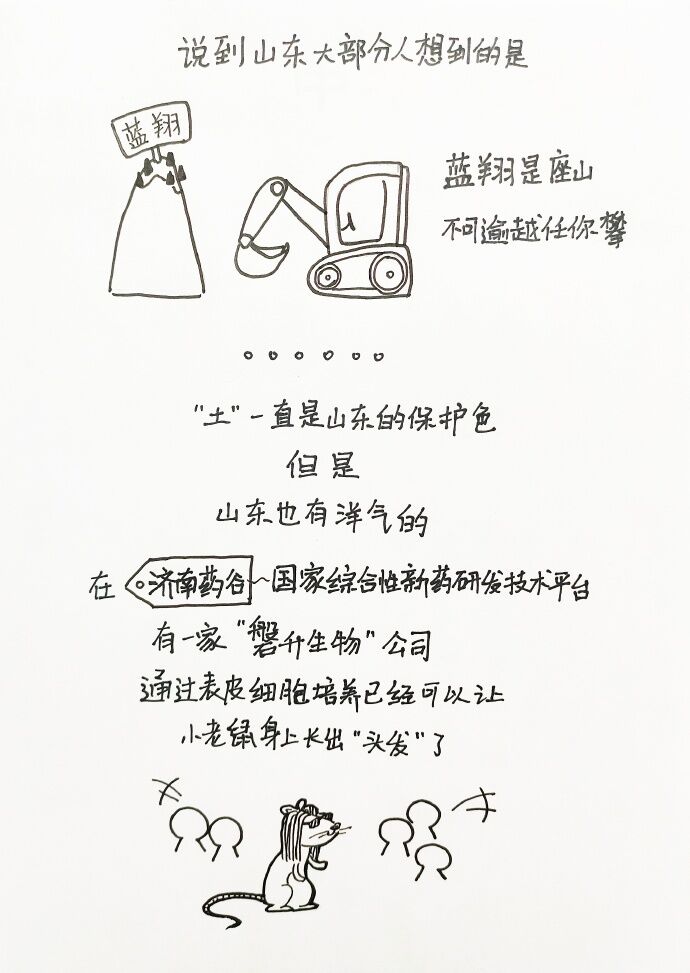 说到山东大部分人想到的是
蓝翔
蓝翔是座山
不可逾越任你攀
。。。。。。
"土"一直是山东的保护色
但是
山东也有洋气的
在 济南药谷~国家综合性新药研发技术平台
有一家"磐升生物"公司
通过表皮细胞培养已经可以让
小老鼠身上长出"头发"了